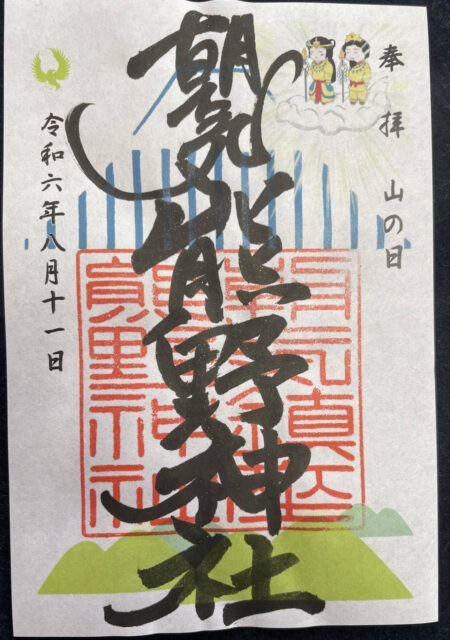 奉拝 山の日
朝気熊野神社
令和六年八月十一日